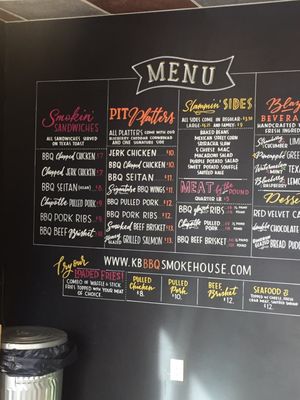 MENU
Smokin'
SANDWICHES
ALL SANDWICHES SERVED
ON TEXAS TOAST
BBQ Chopped CHICKEN
Chopped Jerk CHICKEN
BBQ SEITAN
Chipotle PULLED PORK
BBQ PORK RIBS
BBQ BEEF Brisket
PIT Platters
ALL PLATTERS COME WITH OUR
BLUEBERRY CHEDDAR CORNBREAD
AND ONE SIGNATURE SIDE
JERK CHICKEN 10.
BBQ Chopped CHICKEN 10.
BBQ SEITAN 11.
Signature BBQ WINGS 11.
BBQ PULLED PORK 12.
BBQ PORK RIBS 12.
Smoked BEEF Brisket 13.
GRILLED SALMON 13.
Slammin' SIDES
ALL SIDES COME AS REGULAR
BAKED BEANS
MEXICAN STREET CORN
SRIRACHA SLAW
5 CHEESE MAC
MACARONI SALAD
PURPLE POTATO SALAD
SWEET POTATO SOUFFLE
SAUTEED KALE
MEAT by the POUND
QUARTER LB
BBQ CHICKEN
Chipotle PULLED PORK
BBQ BEEF BRISKET
BEVERA
HANDCRAFTED
FRESH INGREDIE
Strawberry
CUCUMBER
LIM
Pineapple
GREEN
Watermelon
MINT
LEMON
RED VELVET CA
CHOCOLATE
PUDDI
WWW.KBBBQSMOKEHOUSE.COM
Try our
LOADED FRIES!
COMBO IN WAFFLE & STICK
FRIES TOPPED WITH YOUR MEAT
OF CHOICE
PULLED
Chicken
8.
PULLED
Pork
10.
BEEF
Brisket
12.
SEAFOOD
12.